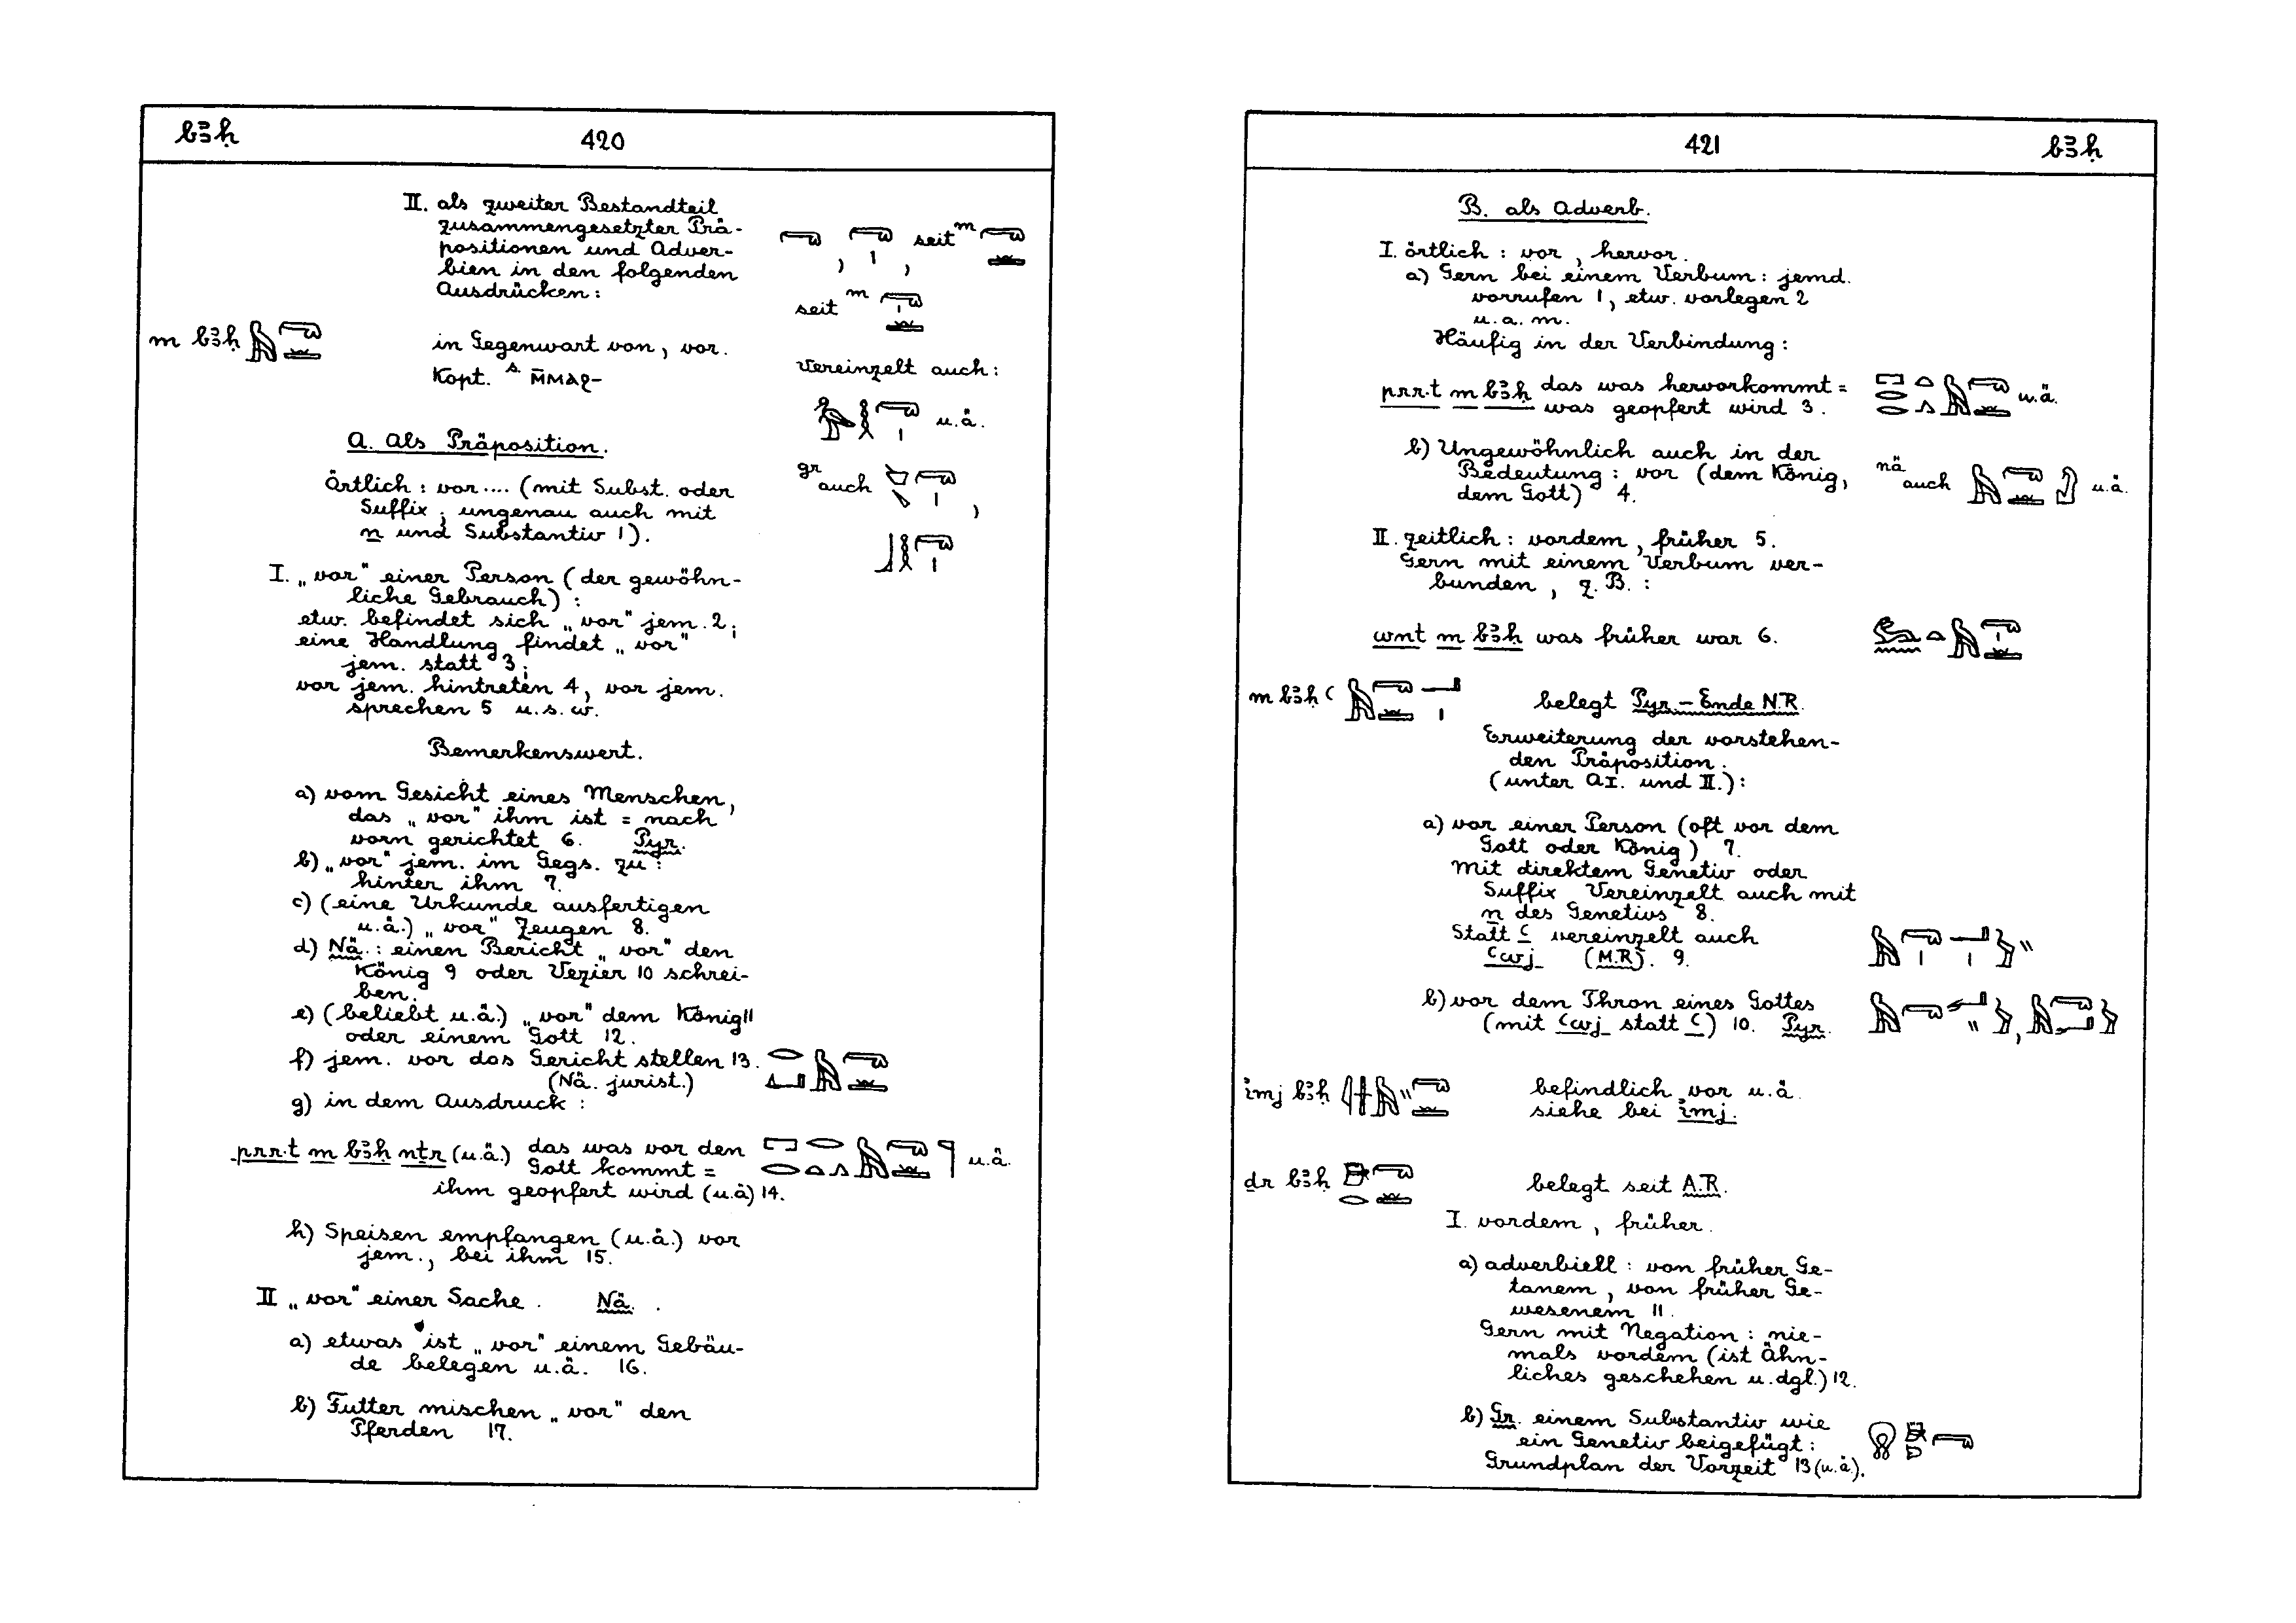 bꜣḥ
420
II. als zweiter Bestandteil
zusammengesetzter Prä-
positionen und Adver-
bien in den folgenden
Ausdrücken:
, , seit m
seit m
m bꜣḥ
in Gegenwart von, vor.
Kopt. s. m̄mаϩ-
Vereinzelt auch:
u.ä.
gr auch ,
A. Als Präposition.
örtlich: vor.... (mit Subst. oder
Suffix; ungenau auch mit
n und Substantiv 1).
I. „vor" einer Person (der gewöhn-
liche Gebrauch):
etw. befindet sich „vor" jem. 2;
eine Handlung findet „vor"
jem. statt 3;
vor jem. hintreten 4, vor jem.
sprechen 5 u.s.w.
Bemerkenswert.
a) vom Gesicht eines Menschen,
das „vor" ihm ist = nach
vorn gerichtet 6. Pyr.
b) „vor" jem. im Gegs. zu:
hinter ihm 7.
c) (eine Urkunde ausfertigen
u.ä.) „vor" Zeugen 8.
d) Nä.: einen Bericht „vor" den
König 9 oder Vezier 10 schrei-
ben.
e) (beliebt u.ä.) „vor" dem König 11
oder einem Gott 12.
f) jem. vor das Gericht stellen 13.
(Nä. jurist.)
g) in dem Ausdruck:
prr.t m bꜣḥ nṯr (u.ä.) das was vor den
Gott kommt = u.ä.
ihm geopfert wird (u.ä) 14.
h) Speisen empfangen (u.ä.) vor
jem., bei ihm 15.
II „vor" einer Sache. Nä. .
a) etwas ist „vor" einem Gebäu-
de belegen u.ä. 16.
b) Futter mischen „vor" den
Pferden 17.
421
bꜣḥ
B. als Adverb.
I. örtlich: vor, hervor.
a) Gern bei einem Verbum: jemd.
vorrufen 1, etw. vorlegen 2
u.a.m.
Häufig in der Verbindung:
prr.t m bꜣḥ das was hervorkommt =
was geopfert wird 3. u.ä.
b) Ungewöhnlich auch in der
Bedeutung: vor (dem König,
dem Gott) 4.
nä auch u.ä.
II. zeitlich: vordem, früher 5.
Gern mit einem Verbum ver-
bunden, z.B.:
wnt m bꜣḥ was früher war 6.
m bꜣḥ ꜥ
belegt Pyr.-Ende N.R.
Erweiterung der vorstehen-
den Präposition.
(unter A I. und II.):
a) vor einer Person (oft vor dem
Gott oder König) 7.
Mit direktem Genetiv oder
Suffix Vereinzelt auch mit
n des Genetivs 8.
Statt ꜥ vereinzelt auch
ꜥwj (M.R). 9.
b) vor dem Thron eines Gottes
(mit ꜥwj statt ꜥ) 10. Pyr. ,
imj bꜣḥ
befindlich vor u.ä.
siehe bei imj.
ḏr bꜣḥ
belegt seit A.R.
I. vordem, früher.
a) adverbiell: von früher Ge-
tanem, von früher Ge-
wesenem 11.
Gern mit Negation: nie-
mals vordem (ist Ähn-
liches geschehen u.dgl.) 12.
b) Gr. einem Substantiv wie
ein Genetiv beigefügt:
Grundplan der Vorzeit 13 (u.ä.).